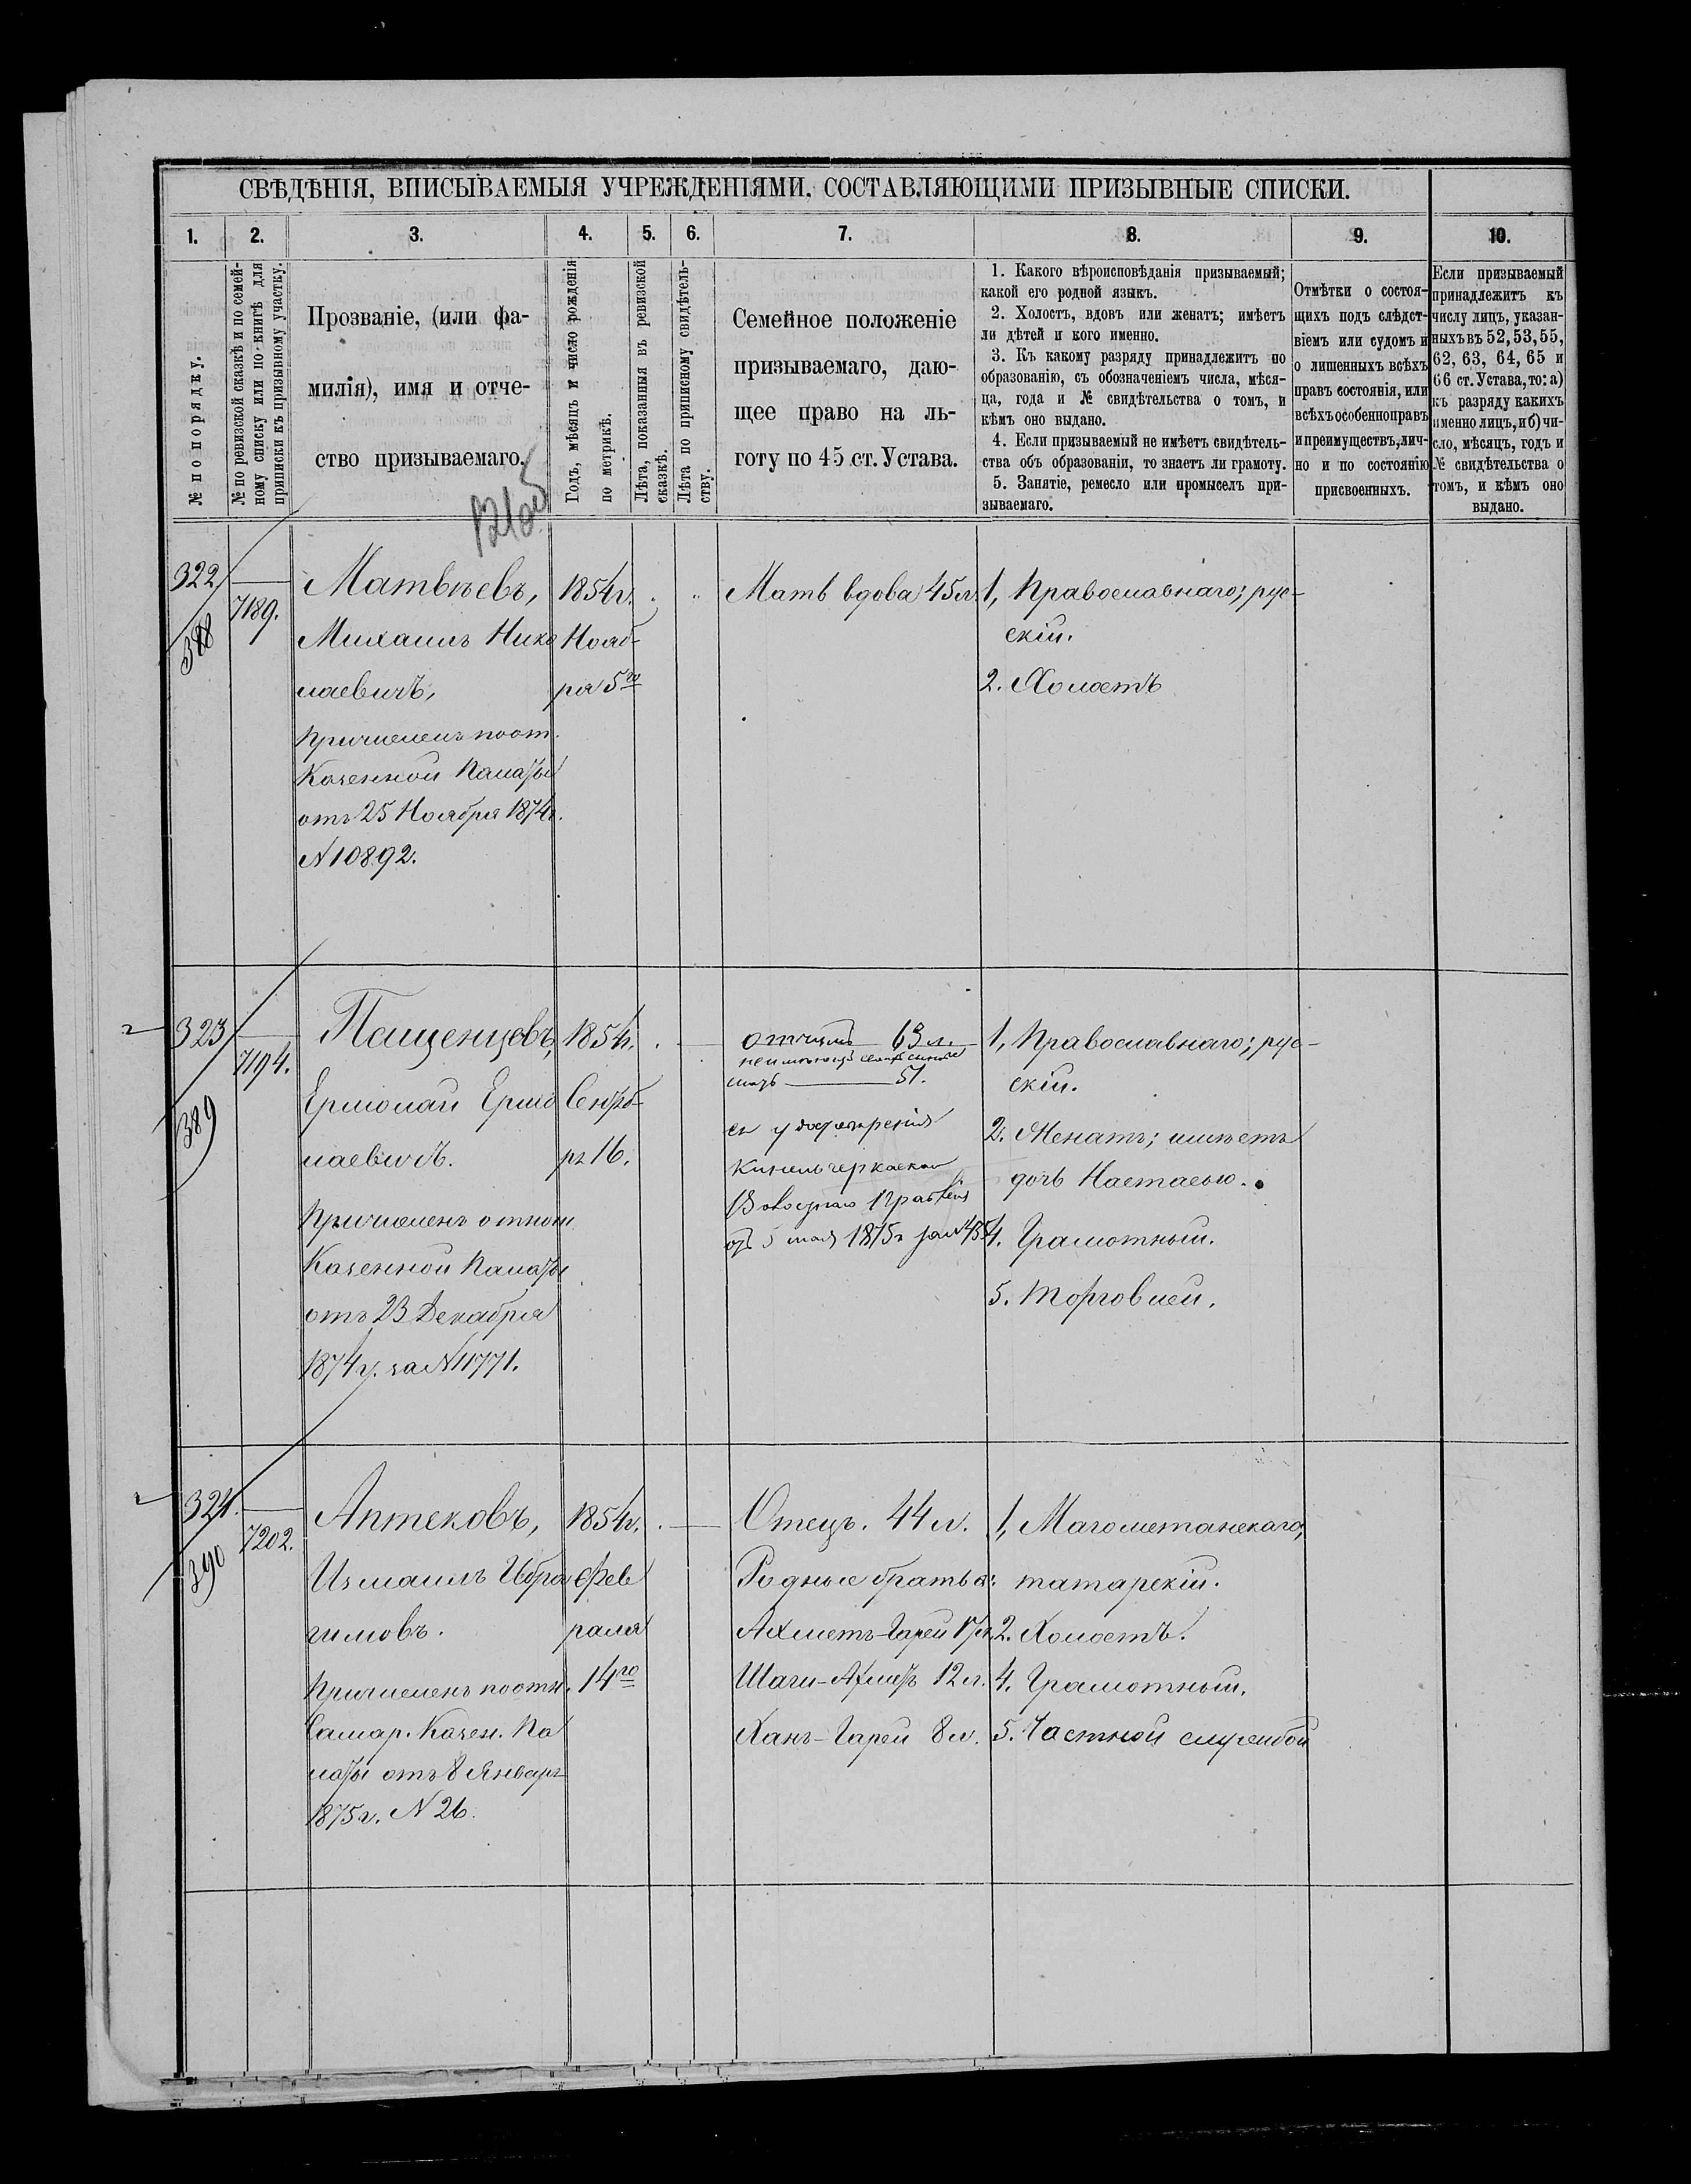 СВѢДѢНІЯ, ВПИСЫВАЕМЫЯ УЧРЕЖДЕНІЯМИ, СОСТАВЛЯЮЩИМИ ПРИЗЫВНЫЕ СПИСКИ.
1. 2. 3. 4. 5. 6. 7. 8. 9. 10.
№ по порядку.
№ по ревизской сказкѣ и по семей-
ному списку или по книгѣ для
приписки къ призывному участку.
Прозваніе, (или фа-
милія), имя и отче-
ство призываемаго.
Годъ, мѣсяцъ и число рожденія
по метрикѣ.
Лѣта, показанныя въ ревизской
сказкѣ.
Лѣта по приписному свидѣтель-
ству.
Семейное положеніе
призываемаго, даю-
щее право на ль-
готу по 45 ст. Устава.
1. Какого вѣроисповѣданія призываемый;
какой его родной языкъ.
2. Холостъ, вдовъ или женатъ; имѣетъ
ли дѣтей и кого именно.
3. Къ какому разряду принадлежитъ по
образованію, съ обозначеніемъ числа, мѣся-
ца, года и № свидѣтельства о томъ, и
кѣмъ оно выдано.
4. Если призываемый не имѣетъ свидѣтель-
ства объ образованіи, то знаетъ ли грамоту.
5. Занятіе, ремесло или промыселъ при-
зываемаго.
Отмѣтки о состоя-
щихъ подъ слѣдст-
віемъ или судомъ и
о лишенныхъ всѣхъ
правъ состоянія, или
всѣхъ особенно правъ
и преимуществъ, лич-
но и по состоянію
присвоенныхъ.
Если призываемый
принадлежитъ къ
числу лицъ, указан-
ныхъ въ 52, 53, 55,
62, 63, 64, 65 и
66 ст. Устава, то: а)
къ разряду какихъ
именно лицъ, и б) чи-
сло, мѣсяцъ, годъ и
№ свидѣтельства о
томъ, и кѣмъ оно
выдано.
322
388
7189.
Матвѣевъ,
Михаилъ Нико
лаевичъ,
Причисленъ по от.
Казенной Палаты
отъ 25 Ноября 1874г.
N 10892.
1854г.
Нояб-
ря 5го
Мать вдова 45 л.
1, Православнаго; рус-
скій.
2. Холостъ
323
389
7194.
Пащенцевъ,
Ермолай Ермо
лаевичъ.
Причисленъ отнош.
Казенной Палаты
отъ 23 Декабря
1874 г. за N 11771.
1854г.
Сентяб-
ря 16.
отчимъ 63 л.
мать 51.
удостовѣренія
Кинель черкаскаго
Волостнаго Правленія
5 мая 1875 г за №
1, Православнаго; рус-
скій.
2. Женатъ; имѣетъ
дочь Настасью.
4. Грамотный.
5. Торговлей.
324.
390
7202.
Аптековъ,
Измаилъ Ибра
гимовъ.
Причисленъ по отн.
Самар. Казен. Па
латы отъ 8 Января
1875 г. N 26.
1854г.
Фев
раля
14го
Отецъ. 44 л.
Родные братья:
Ахметъ-Гарей 17 л.
Шаги-Ахметъ 12 л.
Ханъ-Гарей 8 л.
1, Магометанскаго,
татарскій.
2. Холостъ.
4. Грамотный.
5. Частной службой